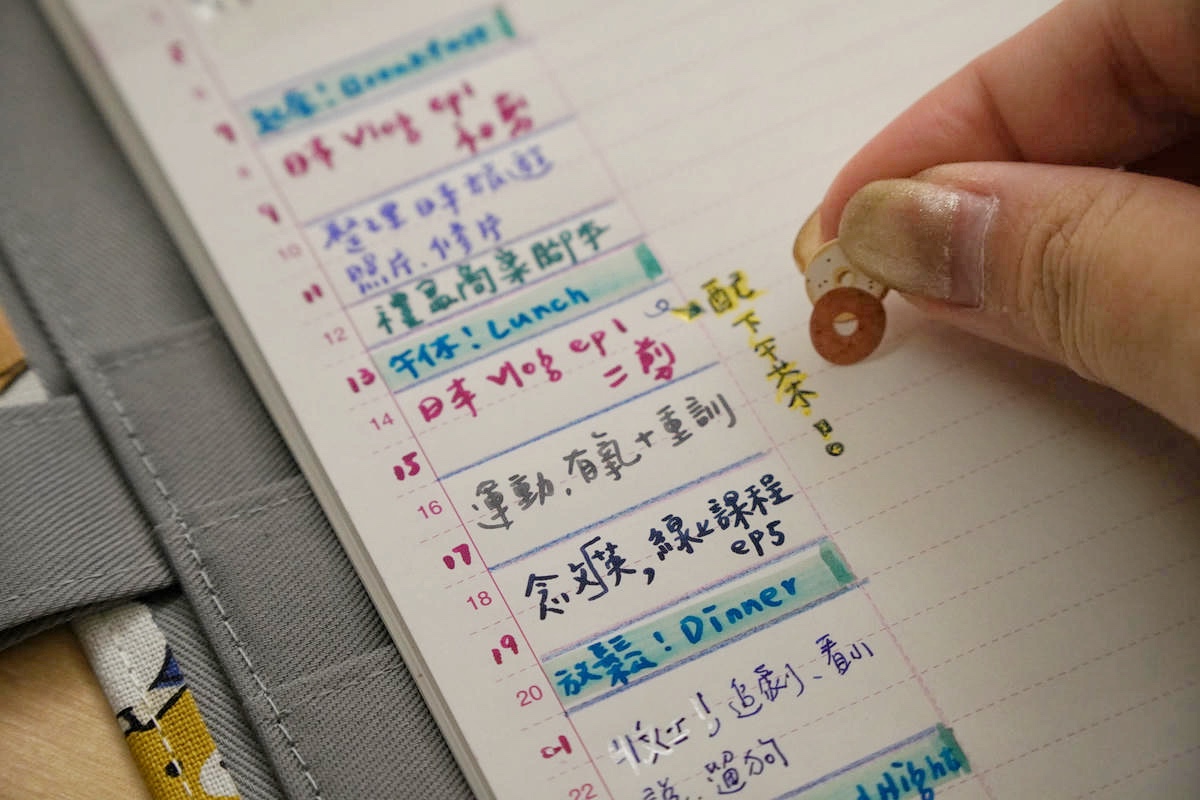 起床！Breakfast
7
日本 Vlog ep1
初剪
9
整理日本旅遊
10
照片、修片
11
禮盒商業腳本
12
午休！Lunch
13
日本 Vlog ep1
二剪
配
下午茶!!
14
15
運動，有氧+重訓
16
17
念多英，線上課程
ep5
18
19
放鬆！Dinner
20
收工！追劇、看小
說、遛狗
22
Night